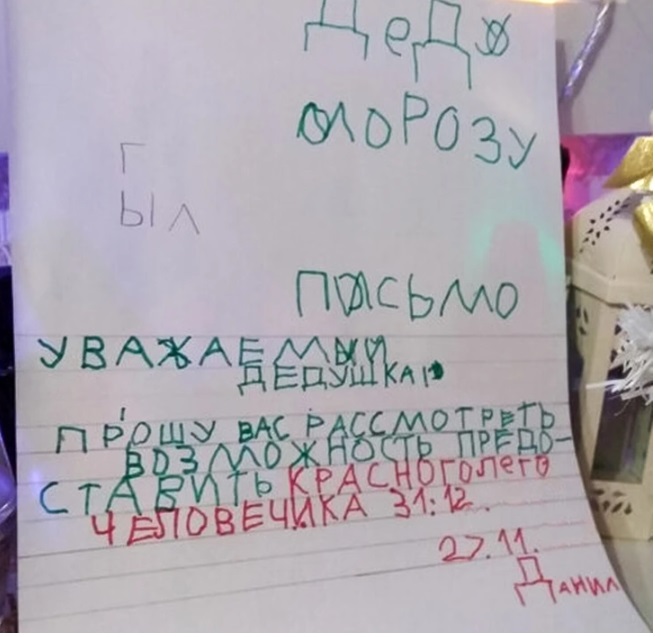 ДеДУ
МОРОЗУ
Г
ЫЛ
ПИСЬМО
УВАЖАЕМЫЙ
ДЕДУШКА!
ПРОШУ ВАС РАССМОТРЕТЬ
ВОЗМОЖНОСТЬ ПРЕДО-
СТАВИТЬ КРАСНОГОЛеГО
ЧЕЛОВЕЧИКА 31:12.
27.11.
ДАНИЛ